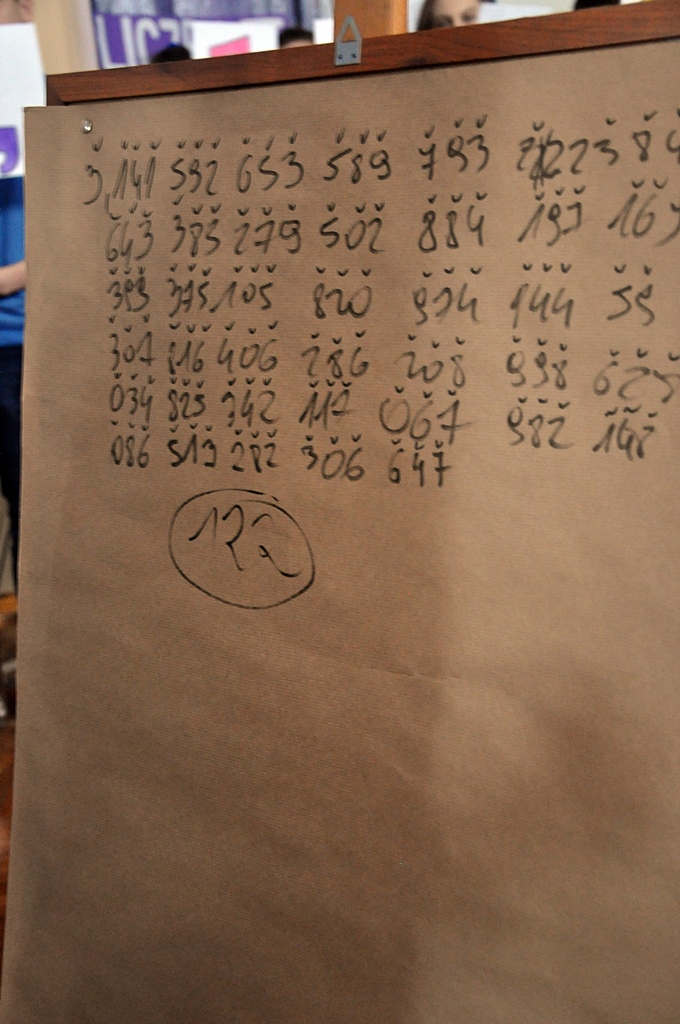 LICZ
3,141 592 653 589 793 2223 84
643 383 279 502 884 197 169
399 375 105 820 974 944 59
307 816 406 286 208 998 625
034 825 342 117 067 982 148
086 513 282 306 647
122